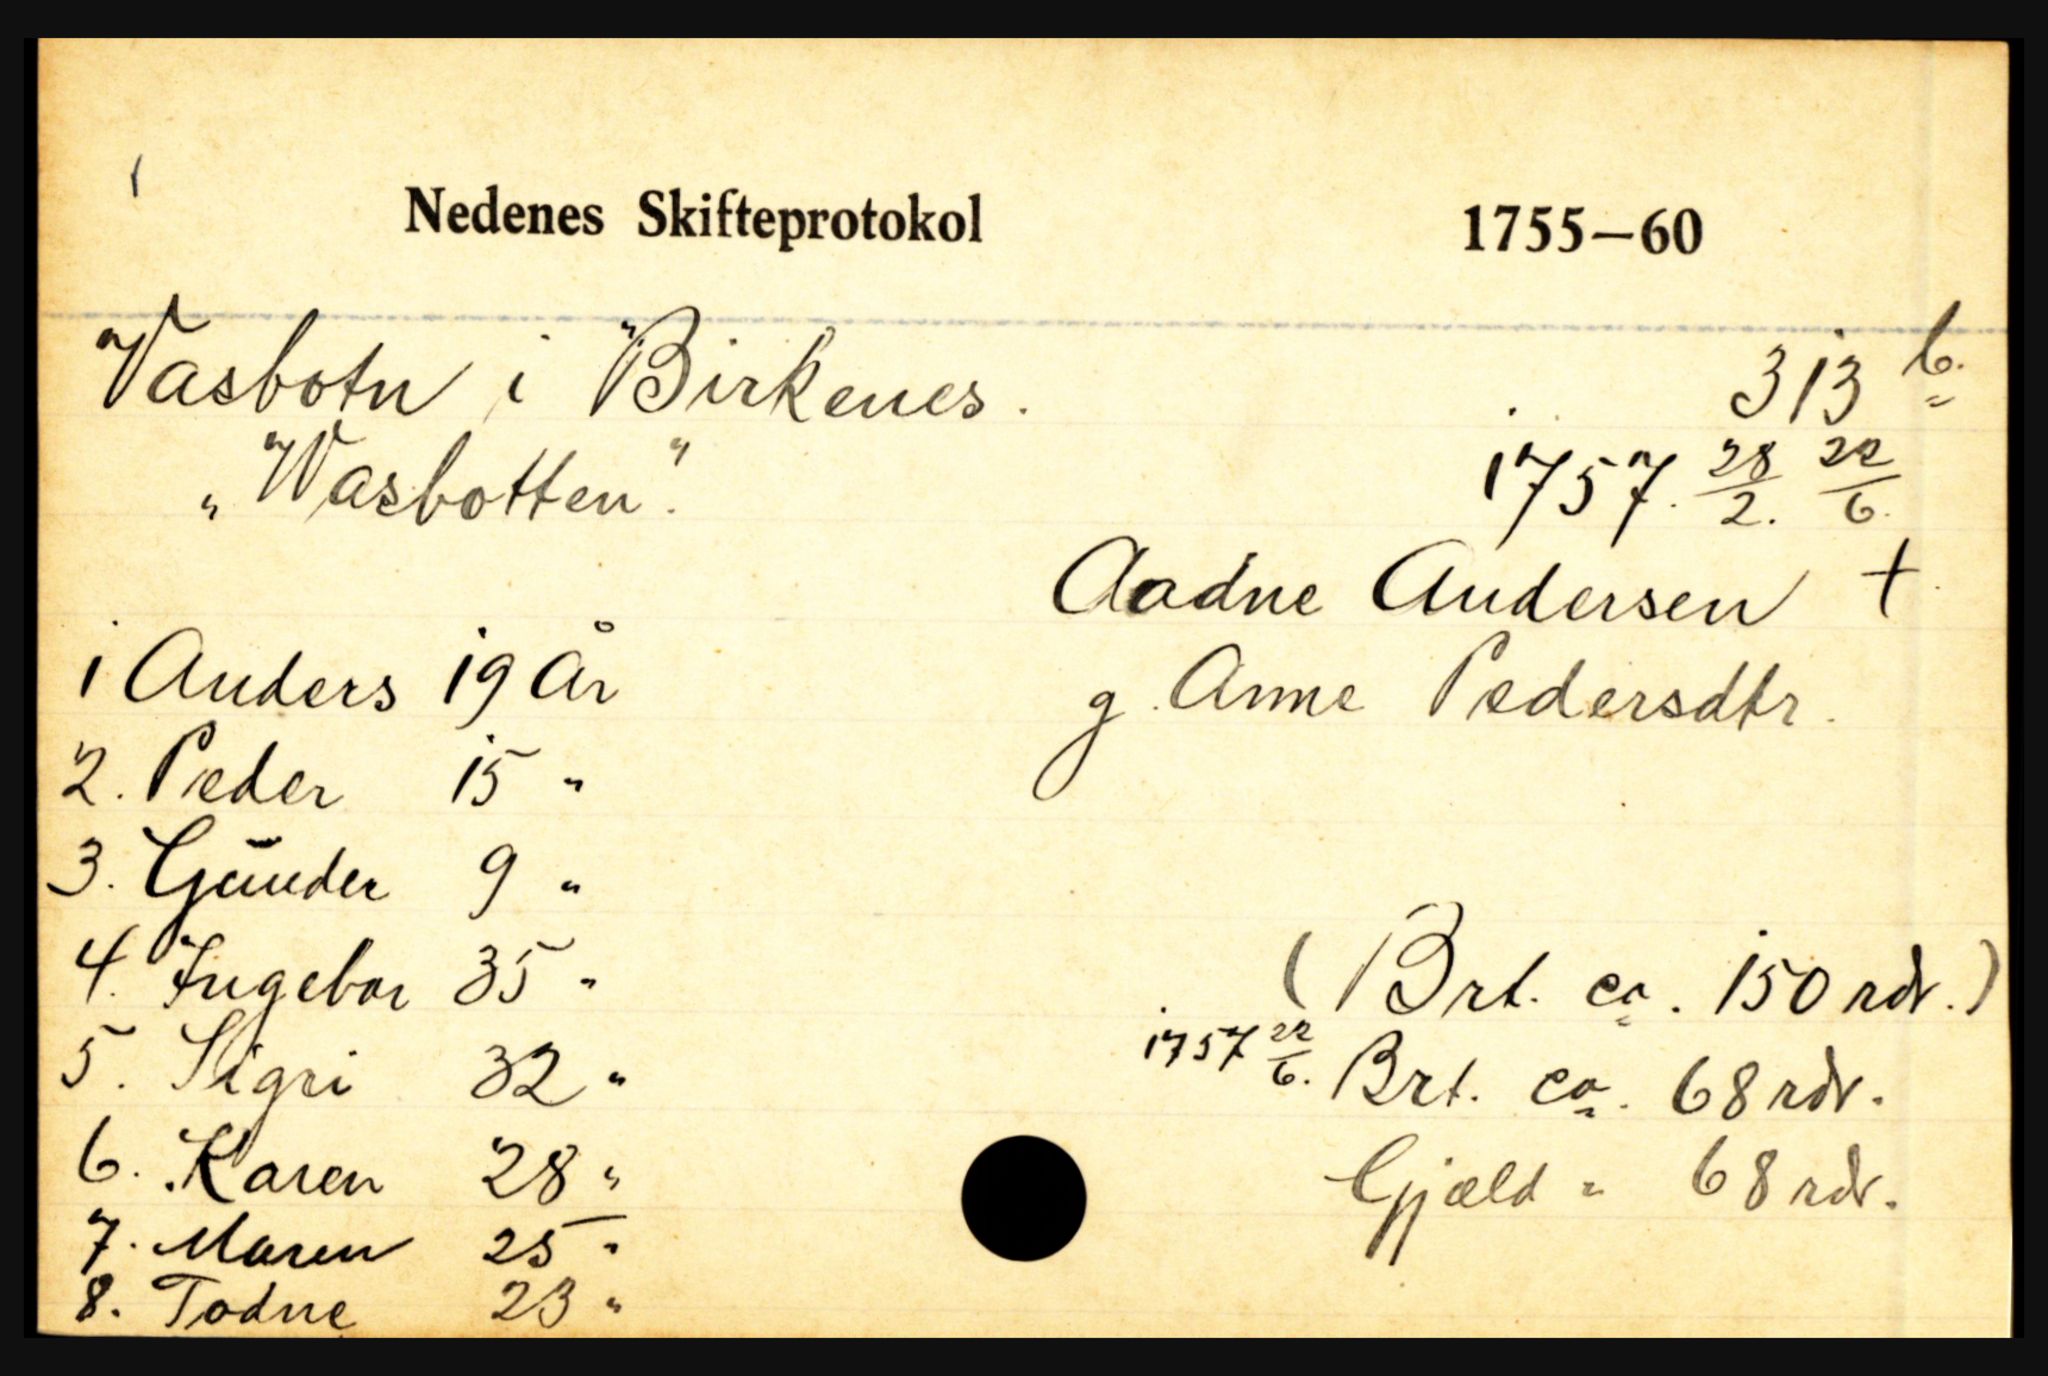 Nedenes Skifteprotokol 1755—60
Vasbotn i Birkenes. 313 b.
"Wasbotten". 1757. 28/2. 22/6.
Aadne Andersen +
1 Anders 19 År g. Anne Pedersdtr.
2. Peder 15 "
3. Gunder 9 "
4. Ingebor 35 " (Brt. ca. 150 rdr.)
5. Sigri 32 " 1757 22/6. Brt. ca. 68 rdr.
6. Karen 28 " Gjæld " 68 rdr.
7. Maren 25 "
8. Todne 23 "